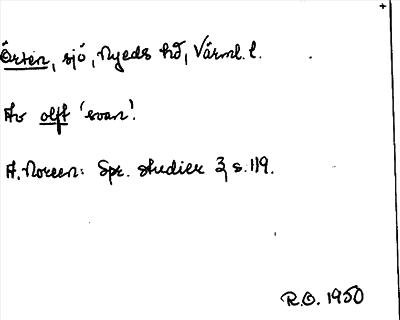 Örten, sjö, Nyeds hd, Värml. l.
Av olft 'svan'.
A. Noreen: Spr. studier 3, s. 119.
R.O. 1950